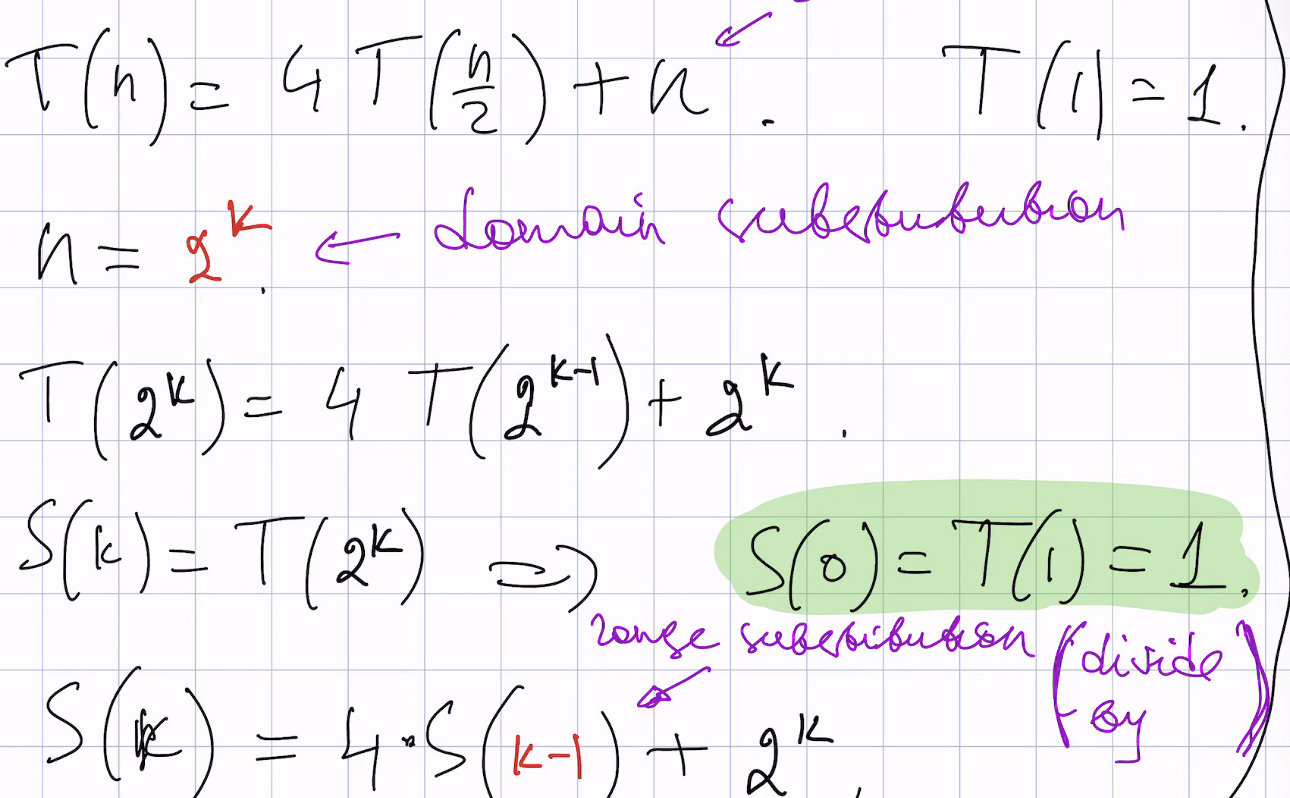 T(n) = 4 T(n/2) + n . T(1) = 1.
n = 2^k. ← domain substitution
T(2^k) = 4 T(2^{k-1}) + 2^k .
S(k) = T(2^k) ⇒ S(0) = T(1) = 1.
range substitution (divide by)
S(k) = 4·S(k-1) + 2^k